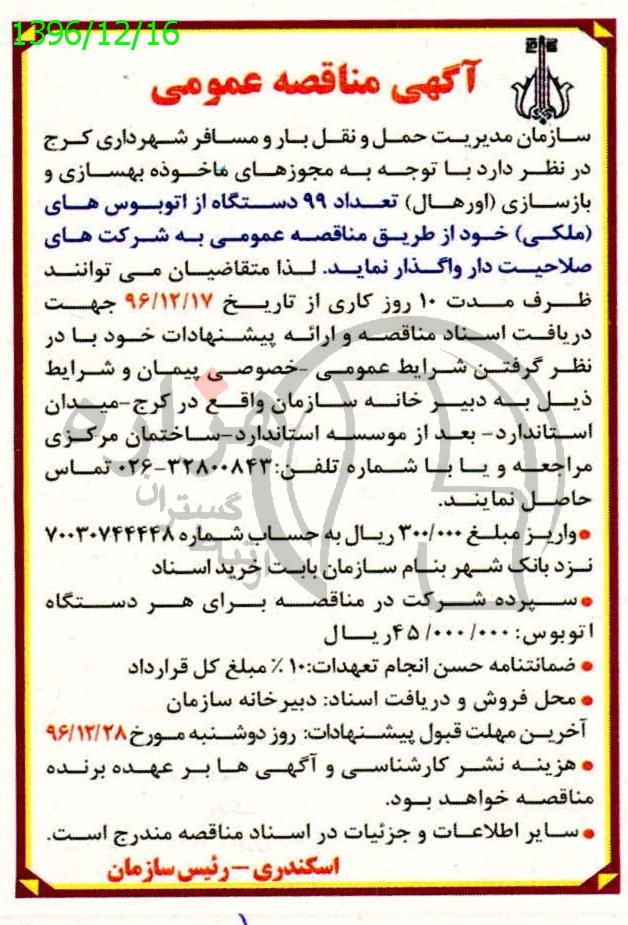 1396/12/16
آگهی مناقصه عمومی
سازمان مدیریت حمل و نقل بار و مسافر شهرداری کرج
در نظر دارد با توجه به مجوزهای ماخوذه بهسازی و
بازسازی (اورهال) تعداد ۹۹ دستگاه از اتوبوس های
(ملکی) خود از طریق مناقصه عمومی به شرکت های
صلاحیت دار واگذار نماید. لذا متقاضیان می توانند
ظرف مدت ۱۰ روز کاری از تاریخ ۹۶/۱۲/۱۷ جهت
دریافت اسناد مناقصه و ارائه پیشنهادات خود با در
نظر گرفتن شرایط عمومی -خصوصی پیمان و شرایط
ذیل به دبیر خانه سازمان واقع در کرج-میدان
استاندارد- بعد از موسسه استاندارد-ساختمان مرکزی
مراجعه و یا با شماره تلفن: ۳۲۸۰۰۸۴۳-۰۲۶ تماس
حاصل نمایند.
● واریز مبلغ ۳۰۰/۰۰۰ ریال به حساب شماره ۷۰۰۳۰۷۴۴۴۴۴۸
نزد بانک شهر بنام سازمان بابت خرید اسناد
● سپرده شرکت در مناقصه برای هر دستگاه
اتوبوس: ۴۵/۰۰۰/۰۰۰ ریال
● ضمانتنامه حسن انجام تعهدات: ۱۰٪ مبلغ کل قرارداد
● محل فروش و دریافت اسناد: دبیرخانه سازمان
آخرین مهلت قبول پیشنهادات: روز دوشنبه مورخ ۹۶/۱۲/۲۸
● هزینه نشر کارشناسی و آگهی ها بر عهده برنده
مناقصه خواهد بود.
● سایر اطلاعات و جزئیات در اسناد مناقصه مندرج است.
اسکندری – رئیس سازمان
هزاره
گستران